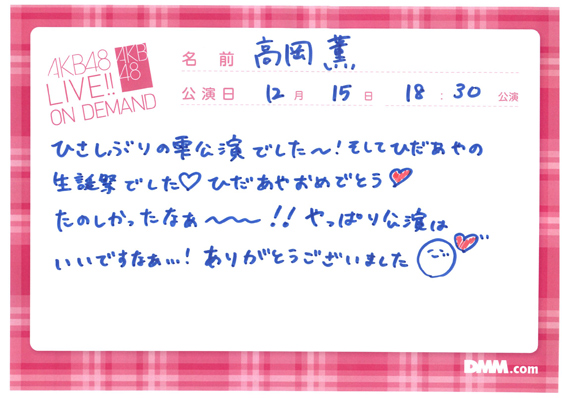 AKB48
LIVE!!
ON DEMAND
AKB
48
名 前 高岡 薫
公演日 12月 15日 18:30 公演
ひさしぶりの雫公演でした〜!そしてひだあやの
生誕祭でした♡ひだあやおめでとう♥
たのしかったなぁ〜〜!!やっぱり公演は
いいですなぁ...!ありがとうございました
DMM.com